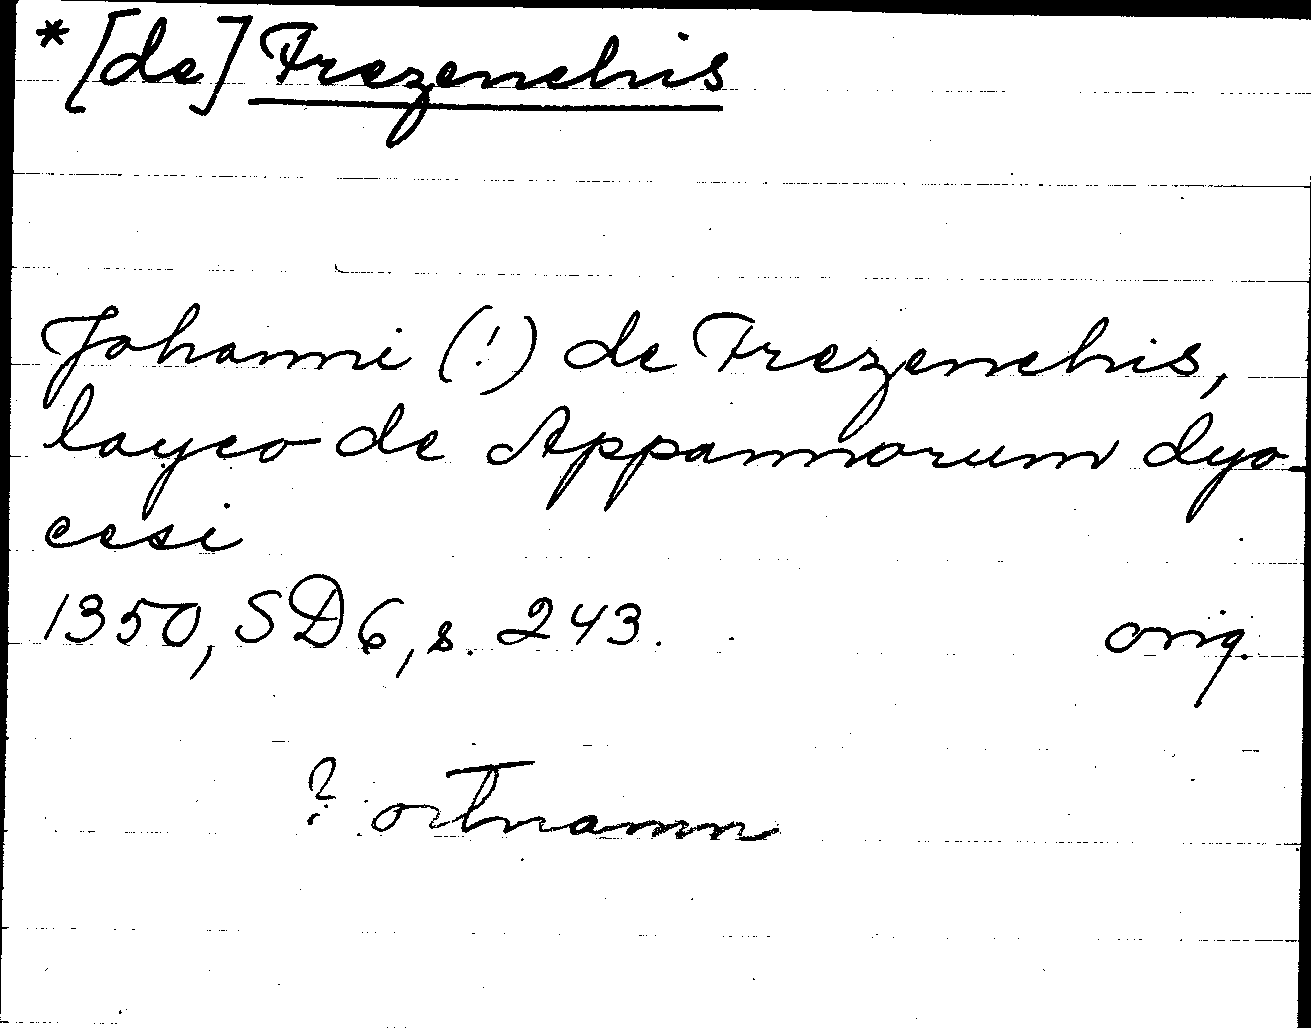 * [de] Frezenchis
Johanni (!) de Frezenchis,
layco de Appamorum dyo-
cesi
1350, SD 6, s. 243. orig.
? ortnamn